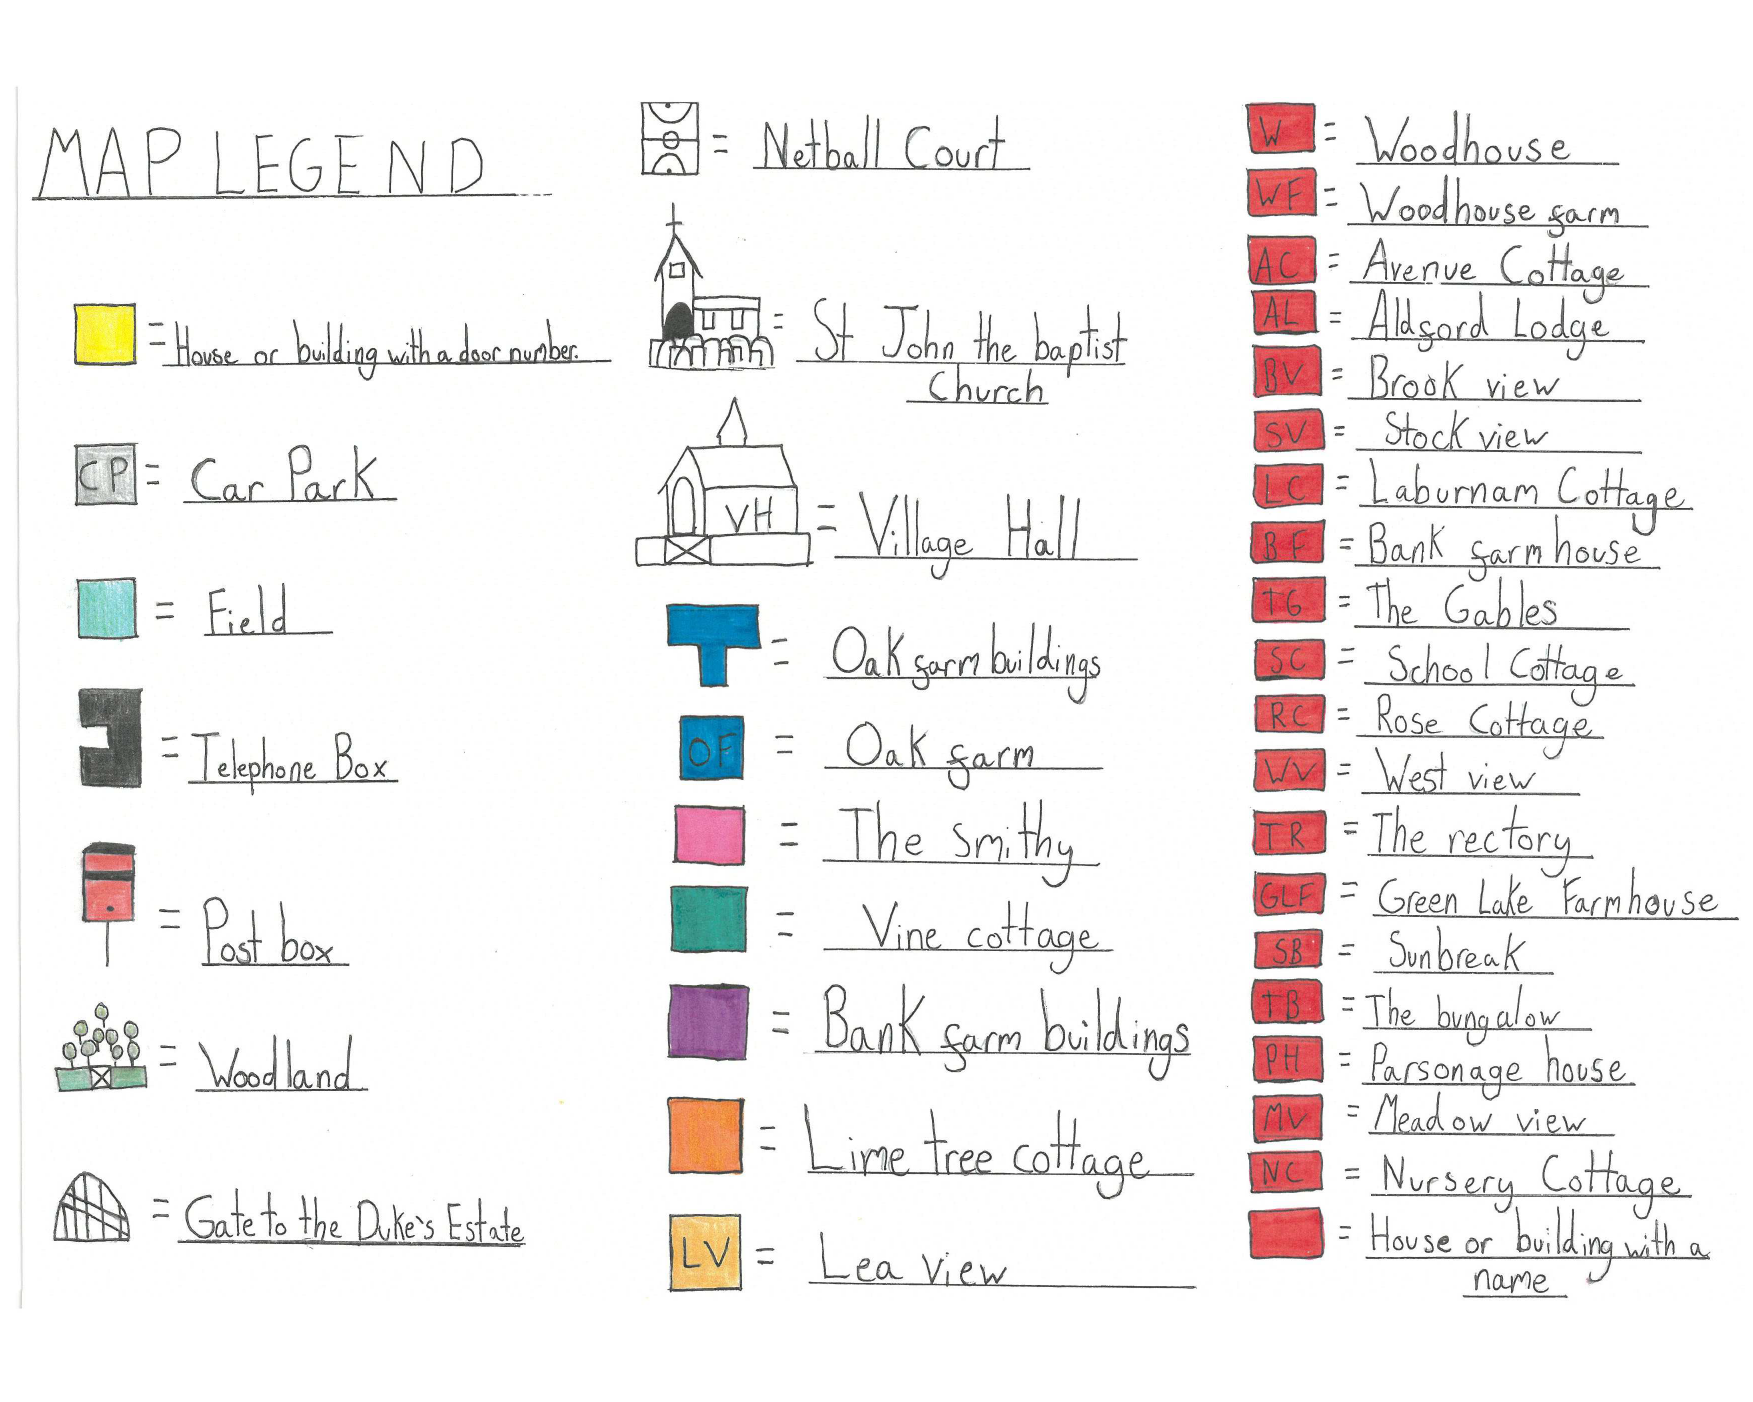 MAP LEGEND
= House or building with a door number.
CP = Car Park
= Field
= Telephone Box
= Post box
= Woodland
= Gate to the Duke's Estate
= Netball Court
= St John the baptist
Church
VH = Village Hall
= Oak farm buildings
OF = Oak farm
= The Smithy
= Vine cottage
= Bank farm buildings
= Lime tree cottage
LV = Lea view
W = Woodhouse
WF = Woodhouse farm
AC = Avenue Cottage
AL = Aldford Lodge
BV = Brook view
SV = Stock view
LC = Laburnam Cottage
BF = Bank farm house
TG = The Gables
SC = School Cottage
RC = Rose Cottage
WV = West view
TR = The rectory
GLF = Green Lake Farmhouse
SB = Sunbreak
TB = The bungalow
PH = Parsonage house
MV = Meadow view
NC = Nursery Cottage
= House or building with a
name